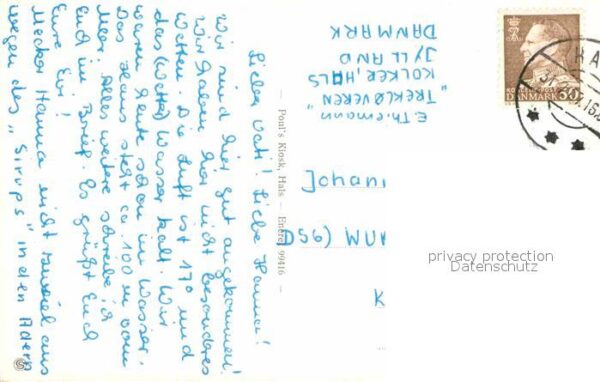 Lieber Vati! Liebe Hanna!
Wir sind hier gut angekommen!
Wir haben hier nicht besonderes
Wetter. Die Luft ist 17° und
das Wasser kalt. Wir
waren heute schon im Wasser.
Das Haus steht ca. 100 m vom
Meer. Alles weitere schreibe ich
Euch im Brief. Es grüßt Euch
Eure Evi!
Mecker Hanna nicht zuviel aus
wegen des "Sirups" in den Adern
E. Thiemann
"TREKLØVEREN"
KOLKER, HALS
JYLLAND
DANMARK
— Poul's Kiosk, Hals — Eneret 99416 —
DANMARK
Johan
D56) WU
K
privacy protection
Datenschutz